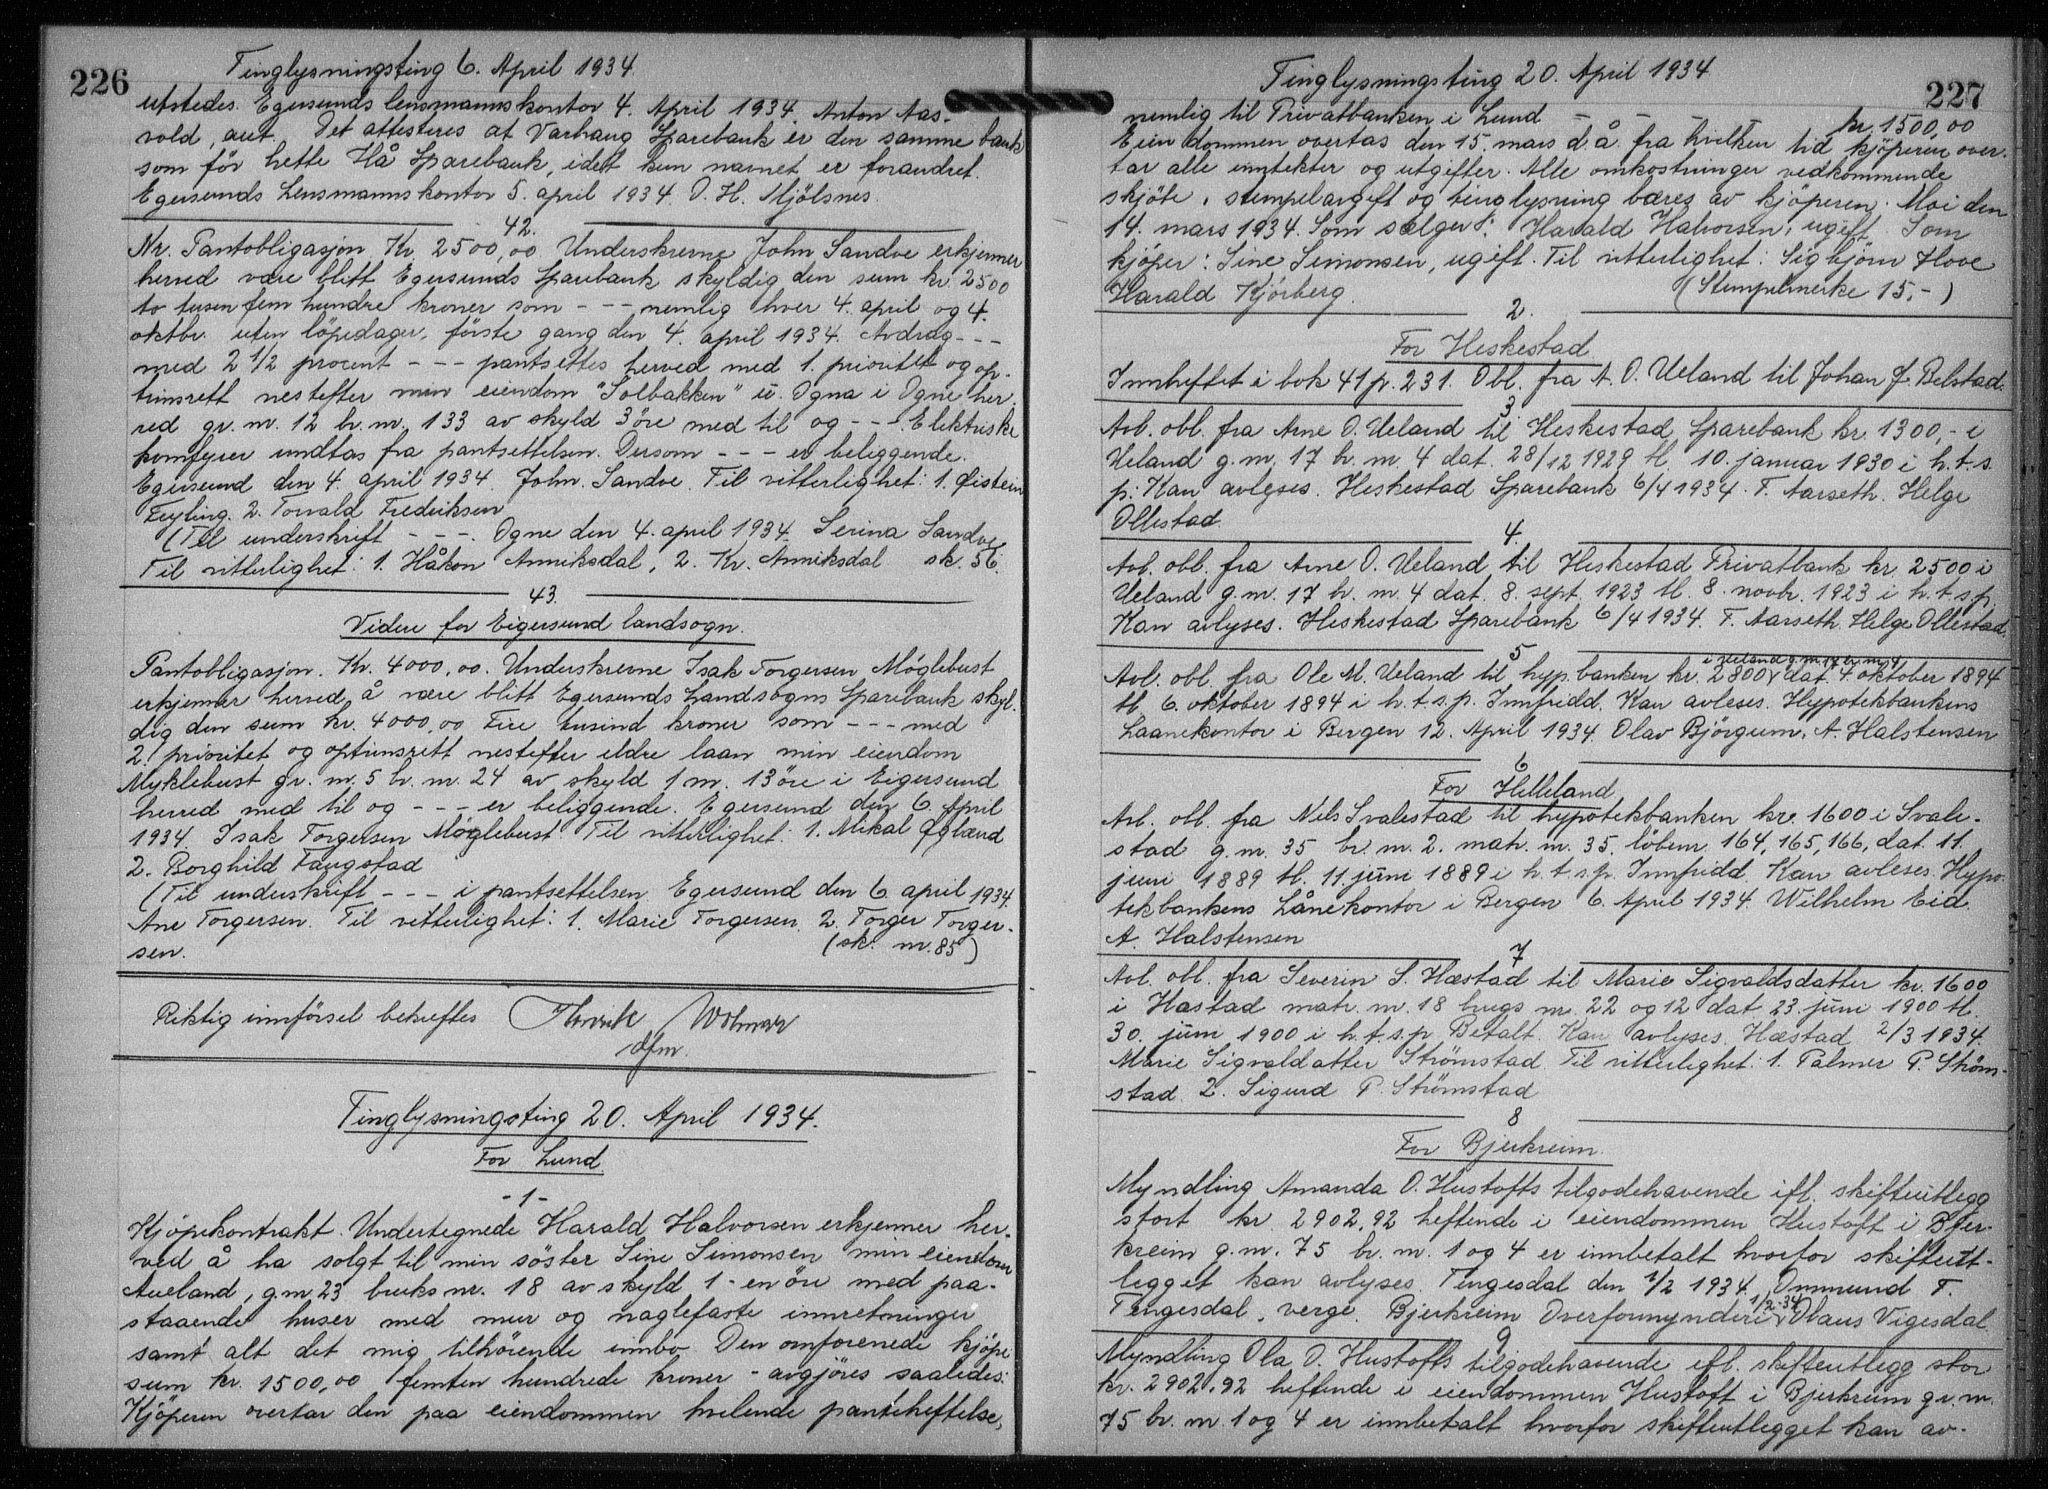 226
Tinglysningsting 6. April 1934.
utstedes. Egersunds lensmannskontor 4. April 1934. Anton Aas-
vold, aut. Det attesteres at Varhaug Sparebank er den samme bank
som för hette Hå Sparebank, idet kun navnet er forandret.
Egersunds Lensmannskontor 5. april 1934. O. H. Mjölsnes.
42.
Nr. Pantobligasjon Kr. 2500,00 Underskrevne John Sandve erkjenner
herved være blitt Egersunds Sparebank skyldig den sum kr. 2500
to tusen fem hundre kroner som - - - nemlig hver 4. april og 4.
oktbr. uten löpedager, förste gang den 4. april 1934. Avdrag - - -
med 2 1/2 procent - - - pantsettes herved med 1. prioritet og op-
trinsrett nestefter min eiendom "Solbakken" u. Ogna i Ogne her-
red gr. nr. 12 br. nr. 133 av skyld 3 öre med til og - - -. Elektriske
komfyrer undtas fra pantsettelsen. Dersom - - - er beliggende.
Egersund den 4. april 1934. John. Sandve. Til vitterlighet: 1. Øistein
Feyling. 2. Torvald Fredriksen
(Til underskrift - - -. Ogne den 4. april 1934. Serina Sandve
Til vitterlighet: 1. Håkon Anniksdal, 2. Kr. Anniksdal sk. 56.
43.
Videre for Eigersund landsogn.
Pantobligasjon. Kr. 4000,00. Underskrevne Isak Torgersen Möglebust
erkjenner herved å være blitt Egersunds Landsogns Sparebank skyl-
dig den sum kr. 4000,00 Fire tusind kroner som - - - med
2. prioritet og optrinsrett nestefter eldre laan min eiendom
Myklebust gr. nr. 5 br. nr. 24 av skyld 1 m. 13 öre i Eigersund
herred med til og - - - er beliggende. Egersund den 6. April
1934. Isak Torgersen Möglebust. Til vitterlighet: 1. Mikal Øglænd
2. Borghild Faugstad
(Til underskrift - - - i pantsettelsen Egersund den 6 april 1934.
Ane Torgersen. Til vitterlighet: 1. Marie Torgersen. 2. Torger Torger-
sen. (sk. nr. 85)
Riktig innförsel bekreftes Henrik Wolmar
dfm.
Tinglysningsting 20. April 1934.
For Lund.
- 1 -
Kjöpekontrakt. Undertegnede Harald Halvorsen erkjenner her-
ved å ha solgt til min söster Sine Simonsen min eiendom
Aueland, g.nr. 23 bruks nr. 18 av skyld 1 - en öre med paa-
staaende huser med mur og naglefaste innretninger
samt alt det mig tilhörende innbo. Den omforenede kjöpe
sum kr. 1500,00 femten hundrede kroner - avgjöres saaledes:
Kjöperen overtar den paa eiendommen hvilende panteheftelse,
227
Tinglysningsting 20. April 1934
nemlig til Privatbanken i Lund - - - - kr. 1500,00
Eiendommen overtas den 15. mars d. å. fra hvilken tid kjöperen over-
tar alle inntekter og utgifter. Alle omkostninger vedkommende
skjöte, stempelavgift og tinglysning bæres av kjöperen. Moi den
14. mars 1934. Som sælger: Harald Halvorsen, ugift. Som
kjöper: Sine Simonsen, ugift. Til vitterlighet: Sigbjörn Hove
Harald Kjörberg. (Stempelmerke 15,-)
2.
For Heskestad
Innheftet i bok 41 p. 231. Obl. fra A. O. Ueland til Johan J. Belstad.
3
Avl. obl. fra Arne O. Ueland til Heskestad Sparebank kr. 1300,- i
Ueland g. nr. 17 b. nr. 4 dat. 28/12 1929 tl. 10. januar 1930 i h. t. s.
p. Kan avleses. Heskestad Sparebank 6/4 1934. T. Aarseth. Helge
Ollestad.
4.
Avl. obl. fra Arne O. Ueland til Heskestad Privatbank kr. 2500 i
Ueland g. nr. 17 b. nr. 4 dat. 8. sept. 1923 tl. 8. novbr. 1923 i h. t. s.p.
Kan avlyses. Heskestad Sparebank 6/4 1934. T. Aarseth. Helge Ollestad.
5
i Ueland g. nr. 17 br. nr. 4
Avl. obl. fra Ole M. Ueland til hyp. banken kr. 2800 dat. 4 oktober 1894
tl. 6. oktober 1894 i h. t. s. p. Innfridd. Kan avleses. Hypotekbankens
Laanekontor i Bergen 12. April 1934. Olav Björgum. A. Halstensen
6
For Helleland
Avl. obl. fra Nils Svalestad til hypotekbanken kr. 1600 i Svale-
stad g. nr. 35 br. nr. 2. matr. nr. 35. löbenr. 164, 165, 166, dat. 11.
juni 1889 tl. 11. juni 1889 i h. t. s.p. Innfridd. Kan avleses. Hypo-
tekbankens Lånekontor i Bergen 6. April 1934. Wilhelm Eid.
A. Halstensen
7
Avl. obl. fra Severin S. Hæstad til Marie Sigvaldsdatter kr. 1600
i Hæstad matr. nr. 18 brugs nr. 22 og 12 dat. 23. juni 1900 tl.
30. juni 1900 i h. t. s. p. Betalt. Kan avlyses. Hæstad 2/3 1934.
Marie Sigvaldatter Strömstad. Til vitterlighet: 1. Palmer P. Ström-
stad. 2. Sigurd P. Strömstad
8
For Bjerkreim.
Myndling Amanda O. Hustofts tilgodehavende ifl. skifteutlegg
stort kr 2902,92 heftende i eiendommen Hustoft i Bjer-
kreim g. nr. 75 br. nr. 1 og 4 er innbetalt hvorfor skifteut-
legget kan avlyses. Tengesdal den 1/2 1934. Ommund T.
Tengesdal, verge. Bjerkreim Overformynderi 1/2-34. Olaus Vigesdal
9
Myndling Ola O. Hustofts tilgodehavende ifl. skifteutlegg stor
kr. 2902,92 heftende i eiendommen Hustoft i Bjerkreim gr. nr.
75 br. nr. 1 og 4 er innbetalt hvorfor skifteutlegget kan av-